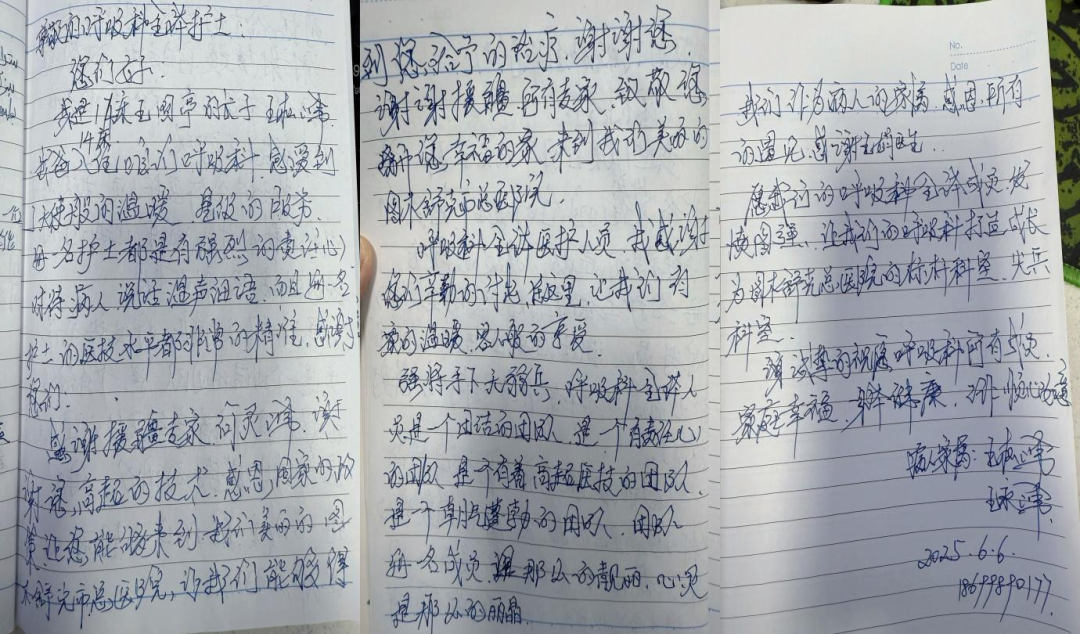 尊敬的呼吸科全体护士:
您们好!
我是14床王国亭的长子王松泽.
我爸入住咱们呼吸科.感受到
家的温暖 星级的服务.
每一名护士都是有强烈的责任心
对待病人说话温声细语.而且每一名
护士的医技水平都非常的精准.感谢
您们.
感谢援疆专家何灵泽.谢
谢您高超的技术.感恩国家的政
策让您能够来到我们美丽的图
木舒克市总医院,让我们能够得
到您治疗的治疗.谢谢您.
谢谢援疆所有专家.致敬您
离开您幸福的家来到我们美丽的
图木舒克市总医院.
呼吸科全体医护人员 我感谢
您们辛勤的付出.在这里.让我们有
家的温暖.客人般的享受.
强将手下无弱兵.呼吸科全体人
员是一个团结的团队.是一个有责任心
的团队.是个有着高超医技的团队.
是一个朝气蓬勃的团队.团队
每一名成员 是那么的靓丽.心灵
是那么的丽晶.
No.
Date
我们作为病人的家属.感恩所有
的遇见.感谢主治医生..
愿我们的呼吸科全体成员.发
愤图强.让我们的呼吸科打造成长
为图木舒克总医院的标杆科室.尖兵
科室.
真诚的祝愿呼吸科所有成员.
家庭幸福.身体健康.工作顺心
病人家属:王松泽
王泽
2025.6.6.
18699890177.